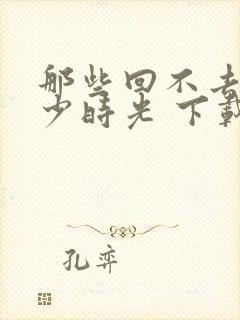 那些回不去
少时光 下载
孔弈